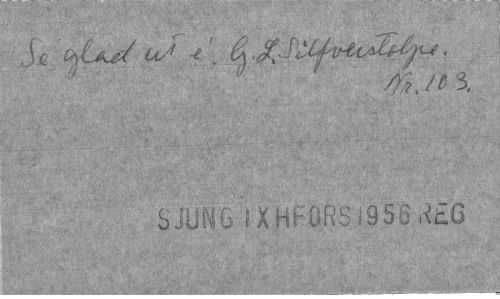 Se glad ut i. G. L. Silfverstolpe.
Nr. 103.
SJUNG IX HFORS 1956 REG